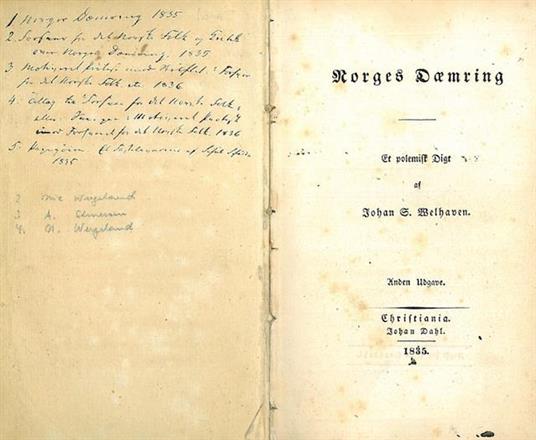 1 Norges Dæmring 1835
2. Forsvar for det Norske Folk og Kritik
over Norges Dæmring. 1835
3 Motiveret Protest mod Skriftet: Forsvar
for det Norske Folk etc. 1836
4. Tillæg til Forsvar for det Norske Folk,
eller:
imod Forsvaret for det Norske Folk 1836
5.
1835
2 Nic Wergeland
3 A.
4. N. Wergeland
Norges Dæmring
Et polemisk Digt
af
Johan S. Welhaven.
Anden Udgave.
Christiania.
Johan Dahl.
1835.